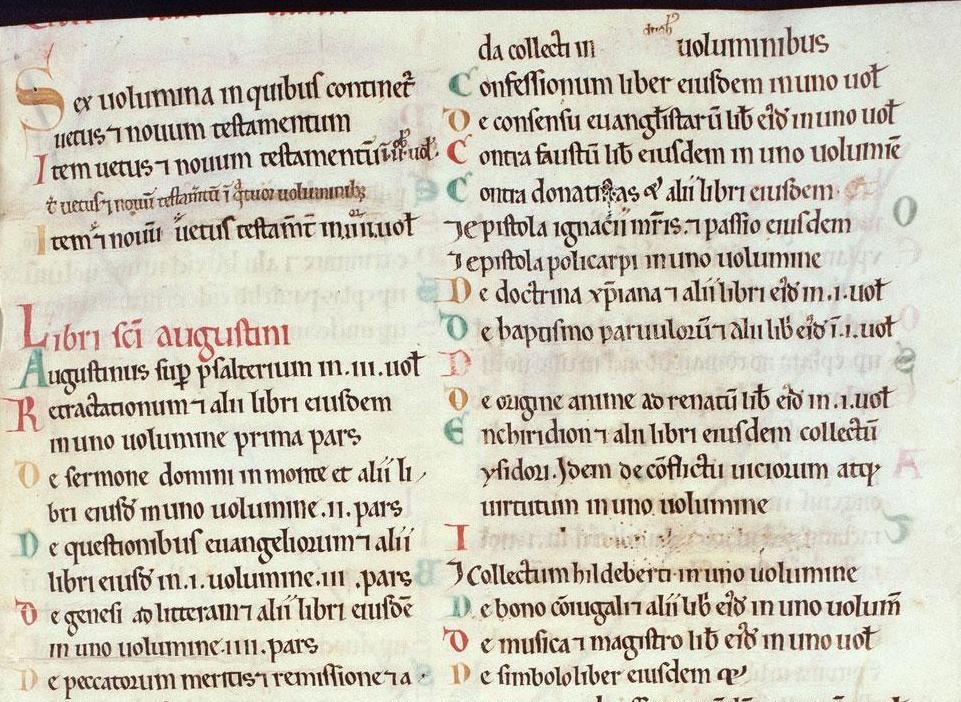 Sex uolumina in quibus continet᷑
uetus ⁊ nouum testamentum
Item uetus ⁊ nouum testamentū in uoł.
uetus ⁊ nouū testamtū ī quuor uoluminibꝫ
Item ⁊ nouū uetus testam̄t in uoł
Libri sc̄i augustini
Augustinus sup̱ psalterium in .iii. uoł
Retractationum ⁊ alii libri eiusdem
in uno uolumine prima pars
De sermone domini in monte et alii li
bri eiusđ in uno uolumine .ii. pars
De questionibus euangeliorum ⁊ alii
libri eiusđ in .i. uolumine .iii. pars
De genesi ad litteram ⁊ alii libri eiusdē
in uno uolumine .iiii. pars
De peccatorum meritis ⁊ remissione ⁊ a
da collecti in uoluminibus
Confessionum liber eiusdem in uno uoł
De consensu euangłistarū lib̄ eiđ in uno uoł
Contra faustū lib̄ eiusdem in uno uolumīe
Contra donatistas ⁊ alii libri eiusdem
⁊ epistola ignacii mr̄is. ⁊ passio eiusdem
⁊ epistola policarpi in uno uolumine
De doctrina xp̄iana ⁊ alii libri eiđ in .i. uoł
De baptismo paruulorū ⁊ alii lib̄ eiđ ī .i. uoł
D
De origine anime ad renatū lib̄ eiđ in .i. uoł
Enchiridion ⁊ alii libri eiusdem collectū
ysidori. Idem de cōflictu uiciorum atqꝫ
uirtutum in uno uolumine
I
⁊ Collectum hildeberti in uno uolumine
De bono cōiugali ⁊ alii lib̄ eiđ in uno uolum̄
De musica ⁊ magistro lib̄ eiđ in uno uoł
De simbolo liber eiusdem